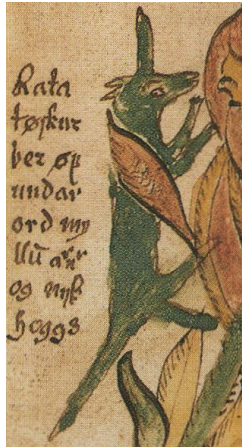 Rata
tøskur
ber øf
undar
ord my
llū arnr
og nijd
hoggs